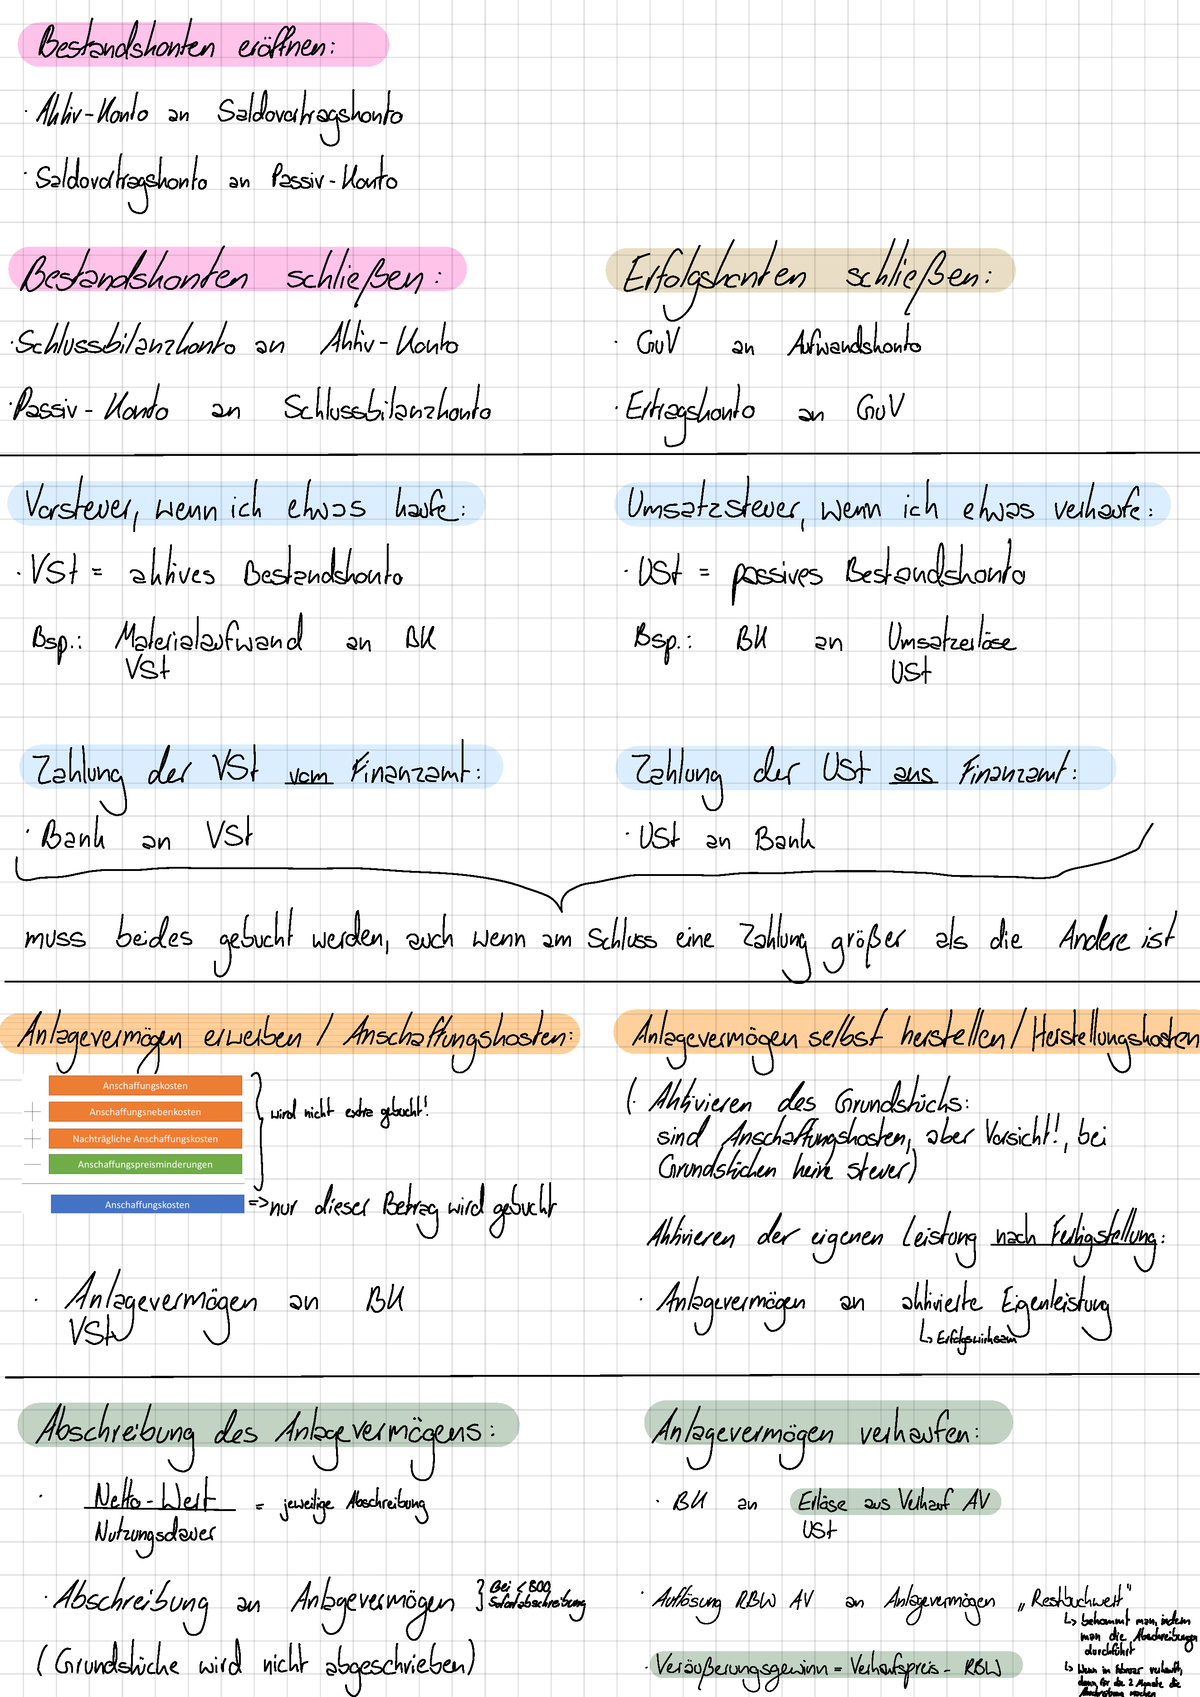 Bestandskonten eröffnen:
· Aktiv-Konto an Saldovortragskonto
· Saldovortragskonto an Passiv-Konto
Bestandskonten schließen:
· Schlussbilanzkonto an Aktiv-Konto
· Passiv-Konto an Schlussbilanzkonto
Erfolgskonten schließen:
· GuV an Aufwandskonto
· Ertragskonto an GuV
Vorsteuer, wenn ich etwas kaufe:
· VSt = aktives Bestandskonto
Bsp.: Materialaufwand an BK
VSt
Umsatzsteuer, wenn ich etwas verkaufe:
· USt = passives Bestandskonto
Bsp.: BK an Umsatzerlöse
USt
Zahlung der VSt vom Finanzamt:
· Bank an VSt
Zahlung der USt ans Finanzamt:
· USt an Bank
muss beides gebucht werden, auch wenn am Schluss eine Zahlung größer als die Andere ist
Anlagevermögen erwerben / Anschaffungskosten:
Anschaffungskosten
+ Anschaffungsnebenkosten
+ Nachträgliche Anschaffungskosten
— Anschaffungspreisminderungen
wird nicht extra gebucht!
Anschaffungskosten => nur dieser Betrag wird gebucht
· Anlagevermögen an BK
VSt
Anlagevermögen selbst herstellen / Herstellungskosten
(· Aktivieren des Grundstücks:
sind Anschaffungskosten, aber Vorsicht!, bei
Grundstücken keine steuer)
Aktivieren der eigenen Leistung nach Fertigstellung:
· Anlagevermögen an aktivierte Eigenleistung
↳ Erfolgswirksam
Abschreibung des Anlagevermögens:
· Netto-Wert = jeweilige Abschreibung
Nutzungsdauer
· Abschreibung an Anlagevermögen } Bei < 800
Sofortabschreibung
(Grundstücke wird nicht abgeschrieben)
Anlagevermögen verkaufen:
· BK an Erlöse aus Verkauf AV
USt
· Auflösung RBW AV an Anlagevermögen „Restbuchwert"
↳ bekommt man, indem
man die Abschreibungen
durchführt
↳ Wenn im Februar verkauft,
dann für die 2 Monate die
Abschreibung machen
· Veräußerungsgewinn = Verkaufspreis - RBW